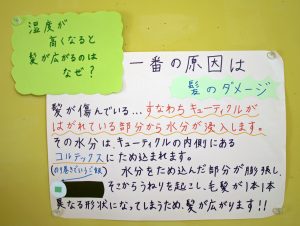 湿度が
高くなると
髪が広がるのは
なぜ？
一番の原因は
髪のダメージ
髪が傷んでいる…すなわちキューティクルが
はがれている部分から水分が浸入します。
その水分は、キューティクルの内側にある
コルテックスにため込まれます。
水分をため込んだ部分が膨張し、
そこからうねりを起こし、毛髪が1本1本
異なる形状になってしまうため、髪が広がります!!